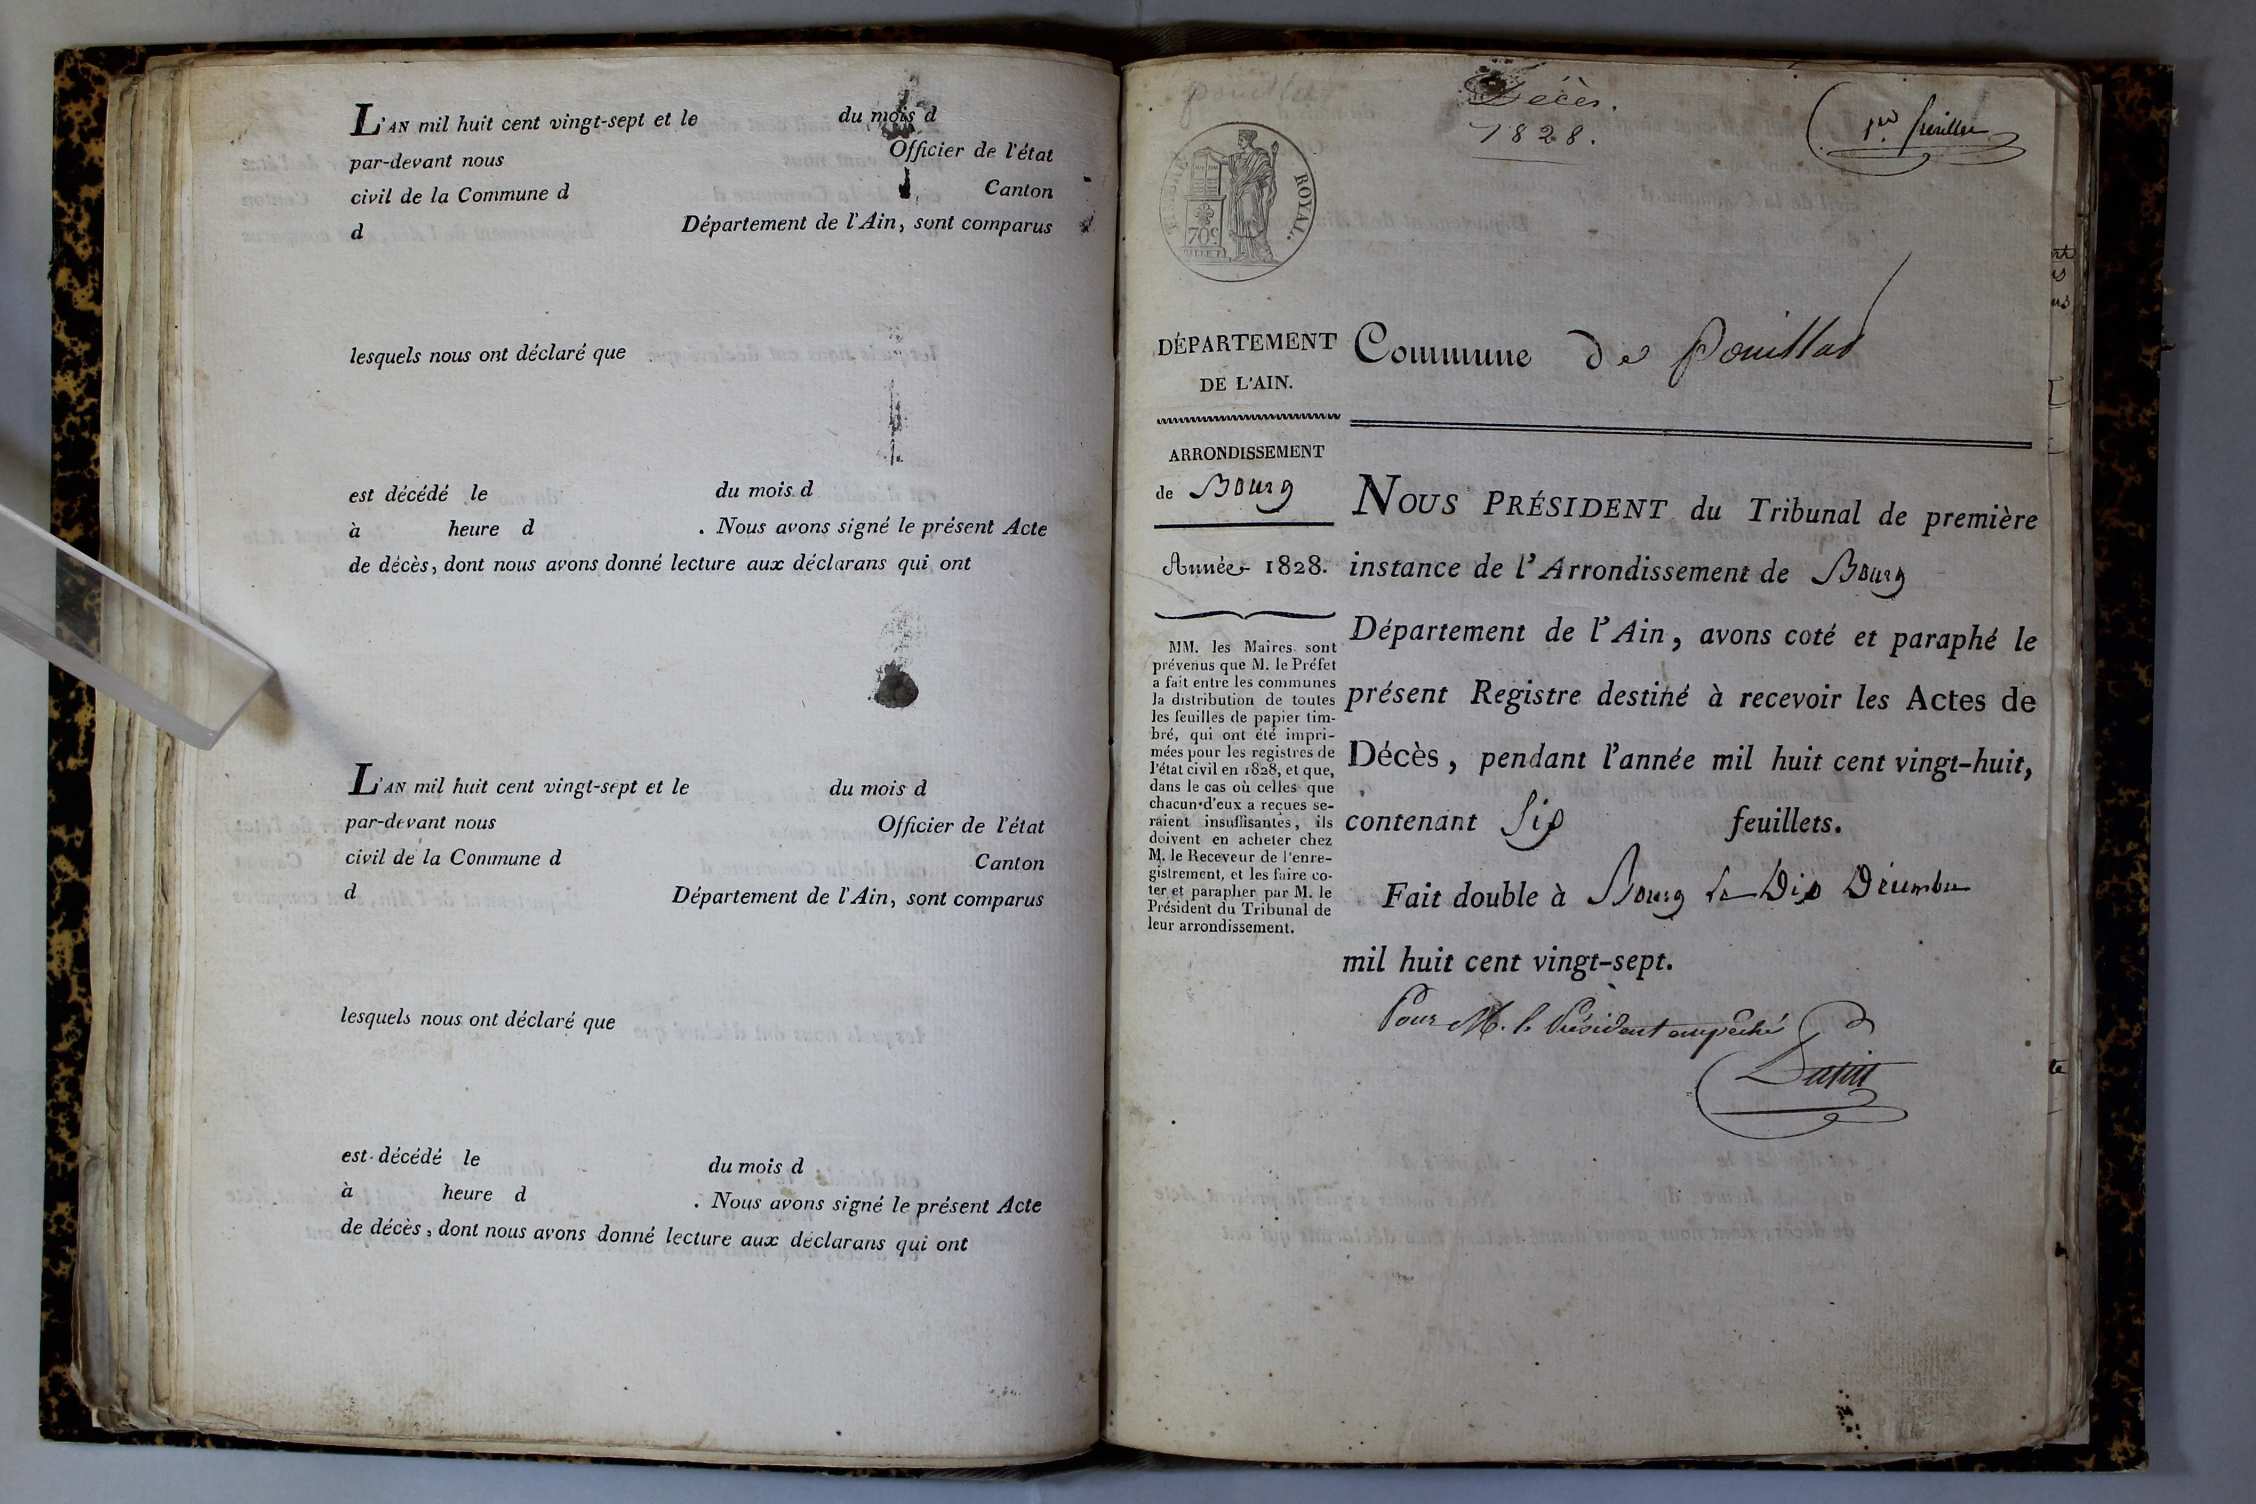 L'AN mil huit cent vingt-sept et le du mois d
par-devant nous Officier de l'état
civil de la Commune d Canton
d Département de l'Ain, sont comparus
lesquels nous ont déclaré que
est décédé le du mois d
à heure d . Nous avons signé le présent Acte
de décès, dont nous avons donné lecture aux déclarans qui ont
L'AN mil huit cent vingt-sept et le du mois d
par-devant nous Officier de l'état
civil de la Commune d Canton
d Département de l'Ain, sont comparus
lesquels nous ont déclaré que
est décédé le du mois d
à heure d . Nous avons signé le présent Acte
de décès, dont nous avons donné lecture aux déclarans qui ont
Décès.
1828.
1er feuillet
TIMBRE ROYAL.
70c
DÉPARTEMENT
DE L'AIN.
ARRONDISSEMENT
de Bourg
Année 1828.
MM. les Maires sont
prévenus que M. le Préfet
a fait entre les communes
la distribution de toutes
les feuilles de papier tim-
bré, qui ont été impri-
mées pour les registres de
l'état civil en 1828, et que,
dans le cas où celles que
chacun d'eux a reçues se-
raient insuffisantes, ils
doivent en acheter chez
M. le Receveur de l'enre-
gistrement, et les faire co-
ter et parapher par M. le
Président du Tribunal de
leur arrondissement.
Commune de Pouillat
NOUS PRÉSIDENT du Tribunal de première
instance de l'Arrondissement de Bourg
Département de l'Ain, avons coté et paraphé le
présent Registre destiné à recevoir les Actes de
Décès, pendant l'année mil huit cent vingt-huit,
contenant Six feuillets.
Fait double à Bourg le Dix Décembre
mil huit cent vingt-sept.
Pour M. le Président empêché